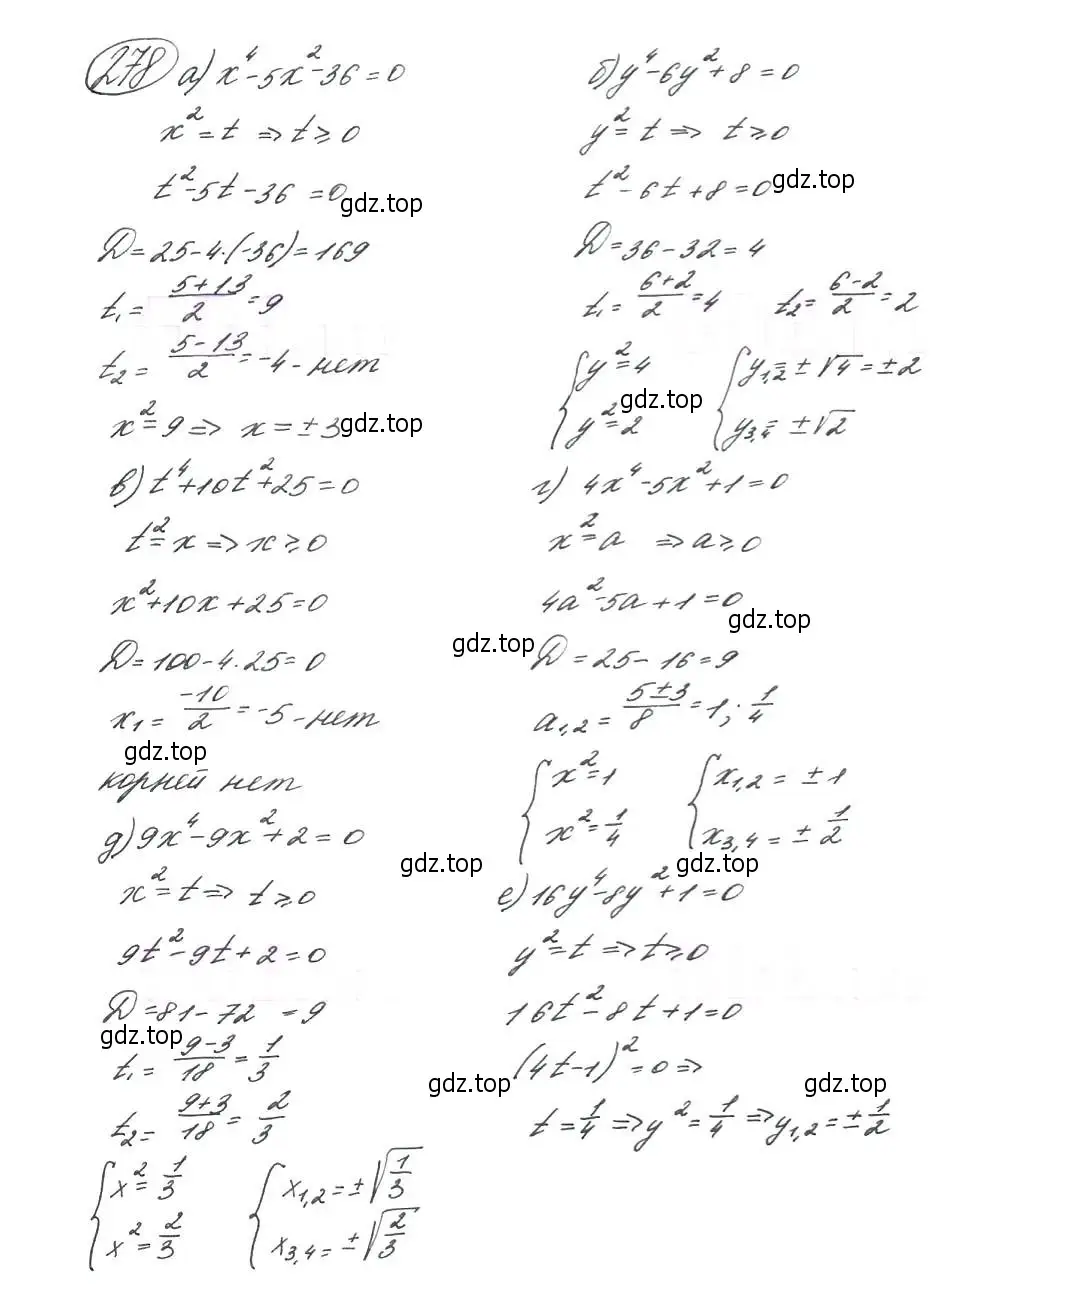 278 а) x⁴-5x²-36=0
x²=t ⇒ t≥0
t²-5t-36=0
gdz.top
D=25-4·(-36)=169
t₁=(5+13)/2=9
t₂=(5-13)/2=-4-нет
x²=9⇒ x=±3
gdz.top
б) y⁴-6y²+8=0
y²=t ⇒ t≥0
t²-6t+8=0
gdz.top
D=36-32=4
t₁=(6+2)/2=4 t₂=(6-2)/2=2
{y²=4 {y₁,₂=±√4=±2
gdz.top
y²=2 y₃,₄=±√2
в) t⁴+10t²+25=0
t²=x⇒x≥0
x²+10x+25=0
gdz.top
D=100-4·25=0
x₁=-10/2=-5-нет
gdz.top
корней нет
г) 4x⁴-5x²+1=0
x²=a ⇒a≥0
4a²-5a+1=0
gdz.top
D=25-16=9
a₁,₂=(5±3)/8=1; 1/4
{x²=1 {x₁,₂=±1
x²=1/4 x₃,₄=±1/2
gdz.top
д) 9x⁴-9x²+2=0
gdz.top
x²=t⇒ t≥0
9t²-9t+2=0
D=81-72=9
gdz.top
t₁=(9-3)/18=1/3
t₂=(9+3)/18=2/3
{x²=1/3 {x₁,₂=±√(1/3)
x²=2/3 x₃,₄=±√(2/3)
е) 16y⁴-8y²+1=0
y²=t⇒t≥0
16t²-8t+1=0
(4t-1)²=0⇒
gdz.top
gdz.top
t=1/4⇒y²=1/4⇒y₁,₂=±1/2